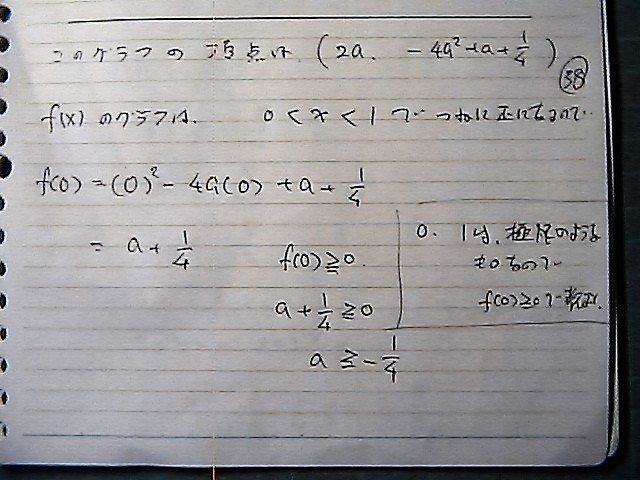 このグラフの頂点は (2a. -4a²+a+1/4)
38
f(x)のグラフは. 0<x<1で つねに正になるので.
f(0)=(0)²-4a(0)+a+1/4
=a+1/4
f(0)≧0.
a+1/4≧0
a≧-1/4
0. 1は、極限のような
ものなので
f(0)≧0で